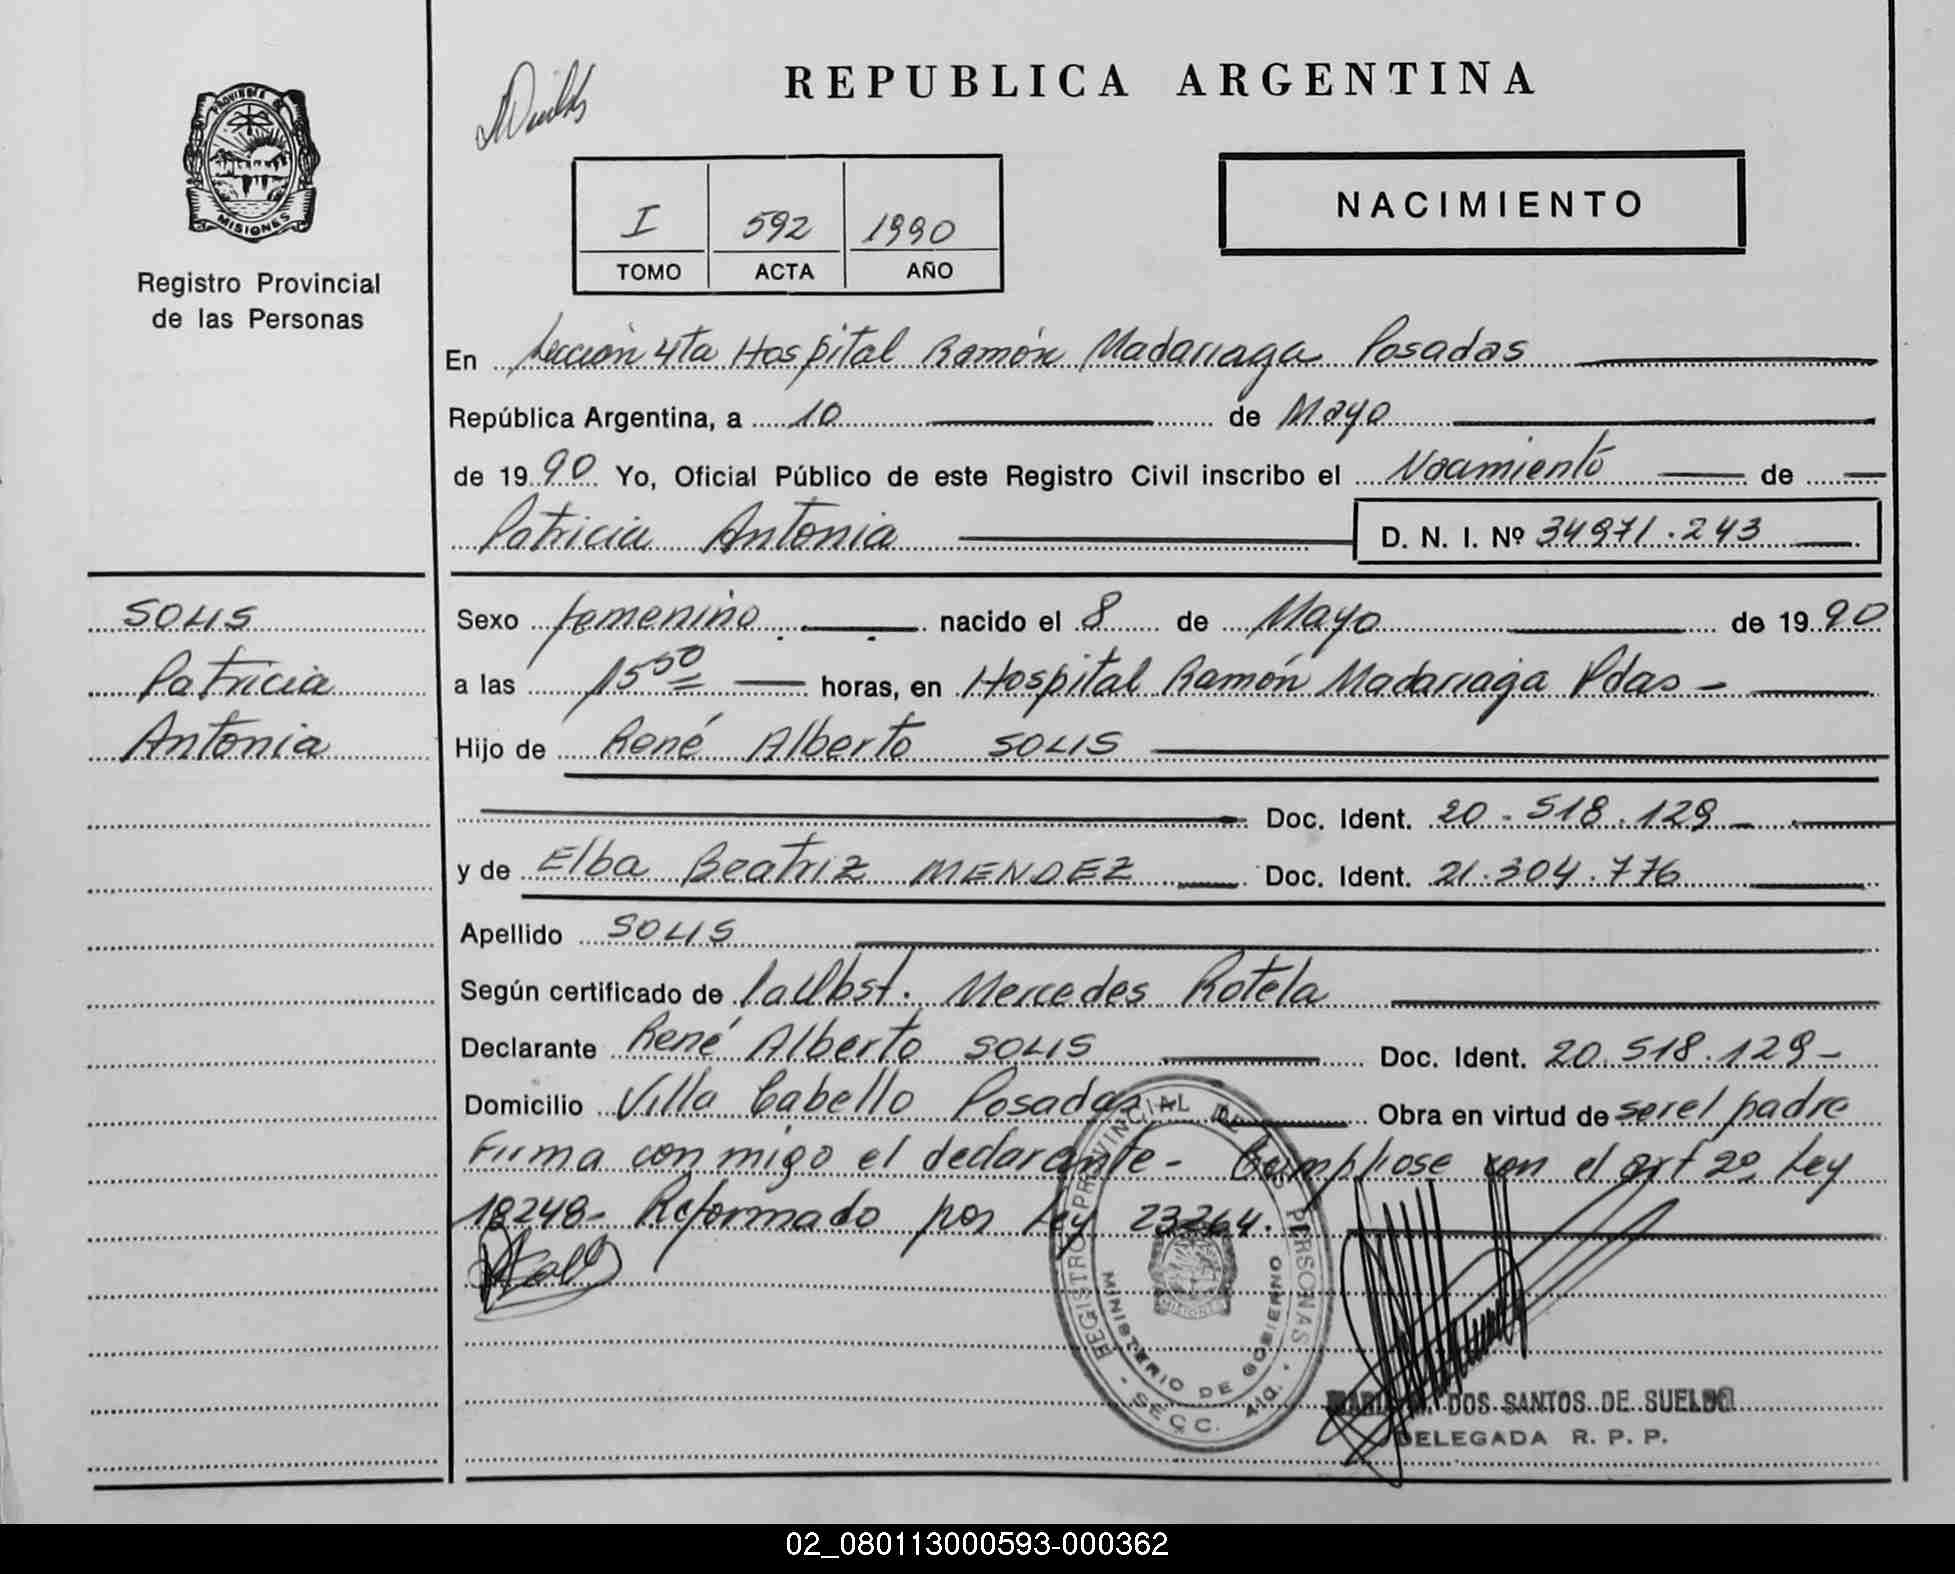 PROVINCIA DE
MISIONES
Registro Provincial
de las Personas
REPUBLICA ARGENTINA
I 592 1990
TOMO ACTA AÑO
NACIMIENTO
En Sección 4ta Hospital Ramón Madariaga Posadas
República Argentina, a 10 de Mayo
de 1990 Yo, Oficial Público de este Registro Civil inscribo el Nacimiento de
Patricia Antonia D. N. I. Nº 34971.243
SOLIS
Patricia
Antonia
Sexo femenino nacido el 8 de Mayo de 1990
a las 15 50 horas, en Hospital Ramón Madariaga Pdas -
Hijo de René Alberto SOLIS
Doc. Ident. 20.518.129 -
y de Elba Beatriz MENDEZ Doc. Ident. 21.304.776
Apellido SOLIS
Según certificado de la Obst. Mercedes Rotela
Declarante René Alberto SOLIS Doc. Ident. 20.518.129 -
Domicilio Villa Cabello Posadas Obra en virtud de ser el padre
Firma conmigo el declarante - Cumpliose con el art 2º Ley
18248 - Reformado por Ley 23264.
REGISTRO PROVINCIAL DE LAS PERSONAS
MINISTERIO DE GOBIERNO
MISIONES
SECC. 4ta.
DOS SANTOS DE SUELDO
DELEGADA R. P. P.
02_080113000593-000362